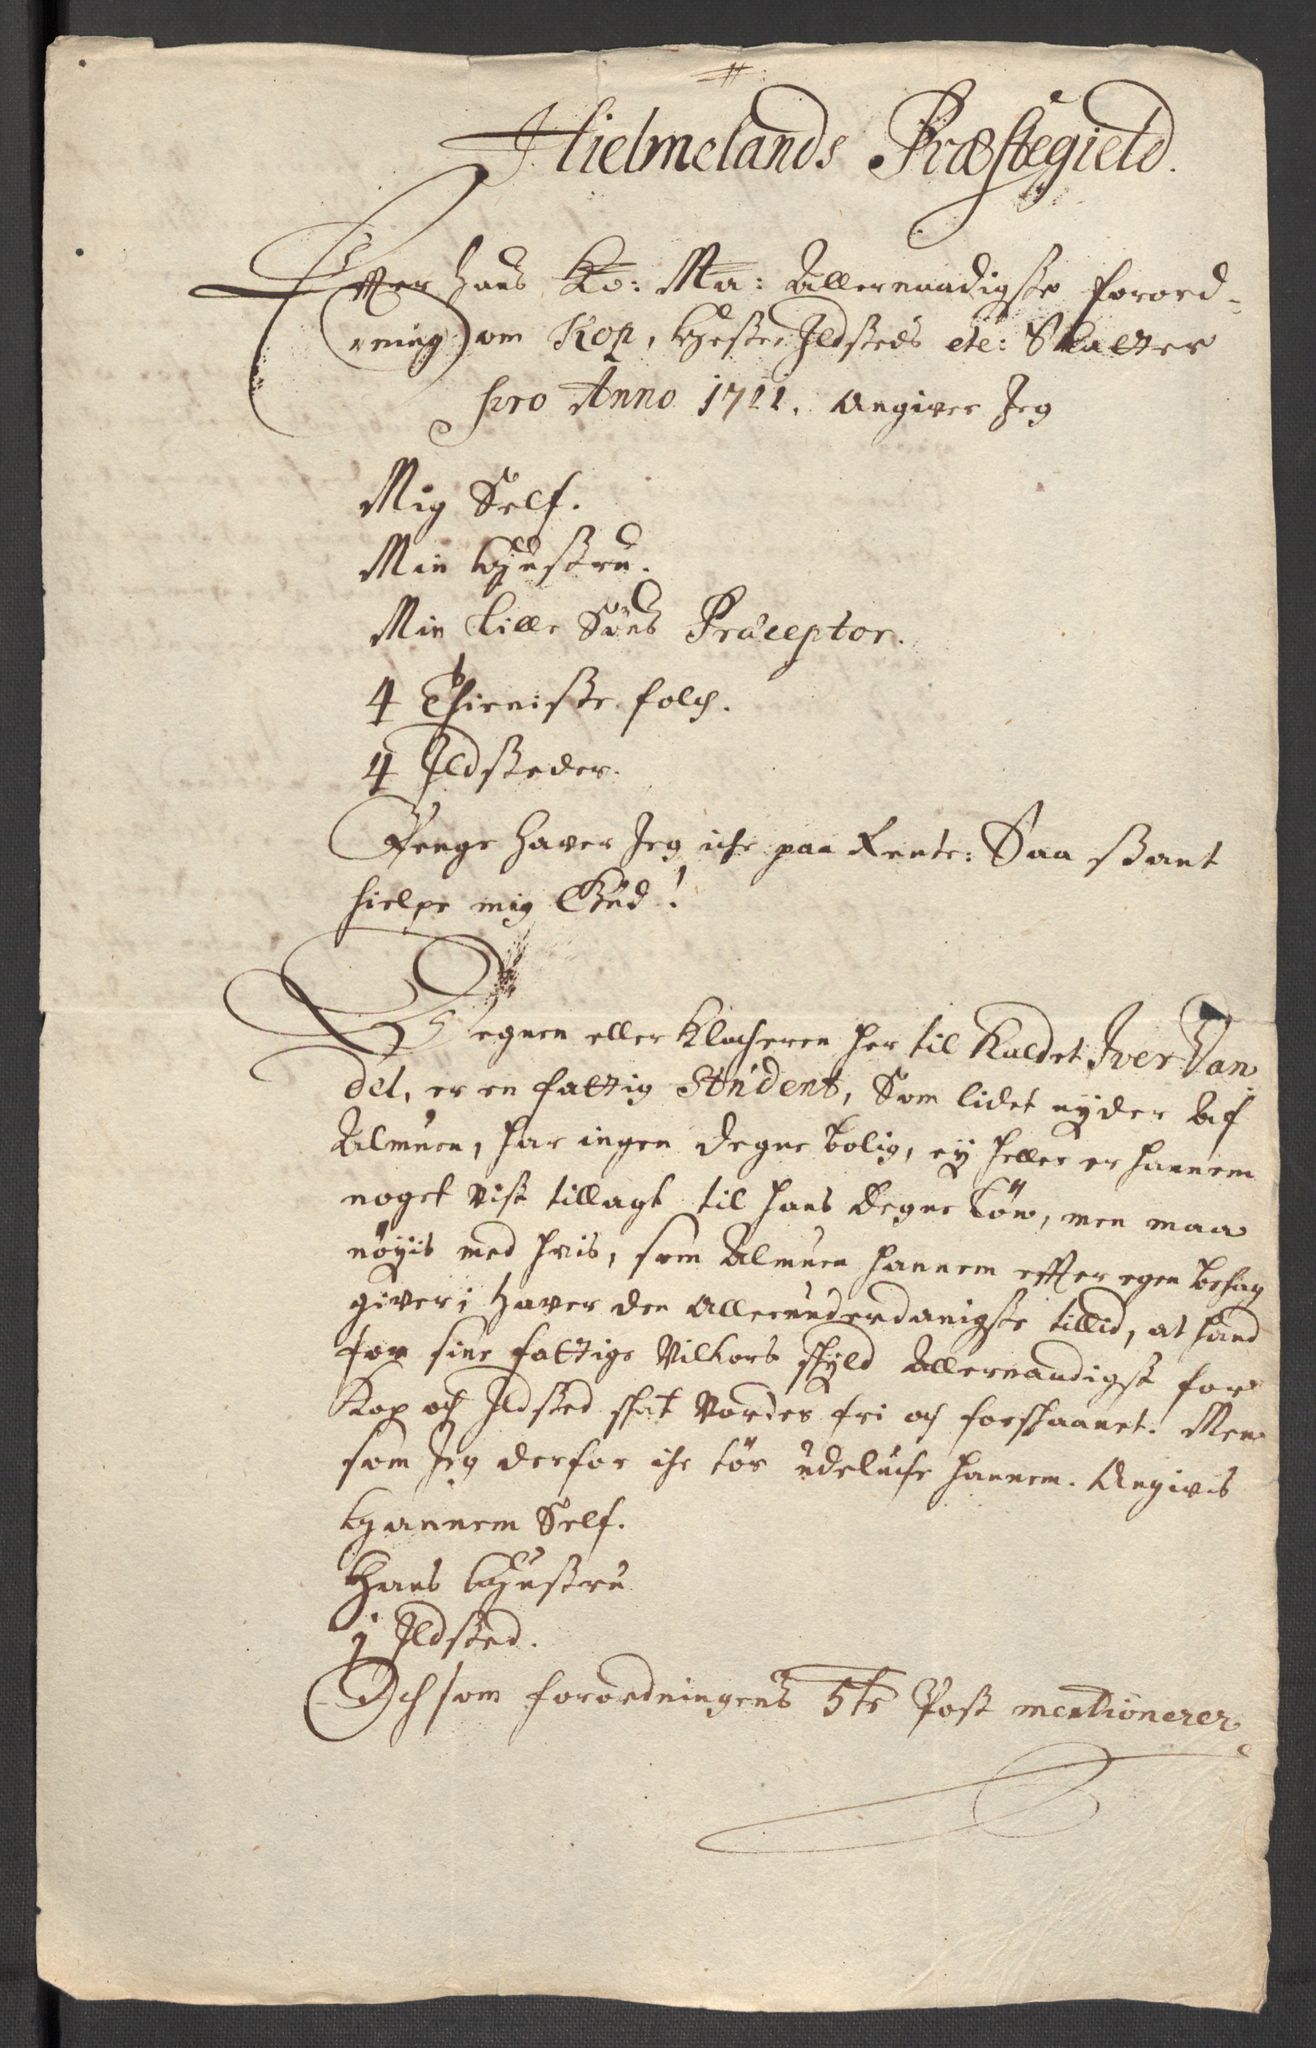 Hielmelands Præstegield.
Effter Hans Ko: Ma: Allernaadigste forord-
ning om Kop, Heste Ildsteds etc: Skatter
pro Anno 1711. Angiver Jeg
Mig Self.
Min Hustru.
Min Lille Søns Præceptor.
4 Thieniste folch.
4 Ildsteder.
Penge haver Jeg iche paa Rente: Saa ßant
hielpe mig Gud!
Degnen eller Klocheren her til Kaldet Iver Van
del, er en fattig Student, Som lidet nyder Af
Almuen, har ingen Degne bolig, ey heller er hannem
noget vist tillagt til hans Degne Løn, men maa
nöyis med hvis, som Almuen hannem effter egen behag
giver; haver den Allerunderdanigste tillid, at hand
for sine fattige Vilkors skyld Allernaadigst for
Kop och Ildsted skat vorder fri och forskaanet. Men
som Jeg derfor iche tör udeluche hannem. Angivis
Hannem Self.
Hans Hustru
1 Ildsted.
Och som forordningens 5te Post mentionerer